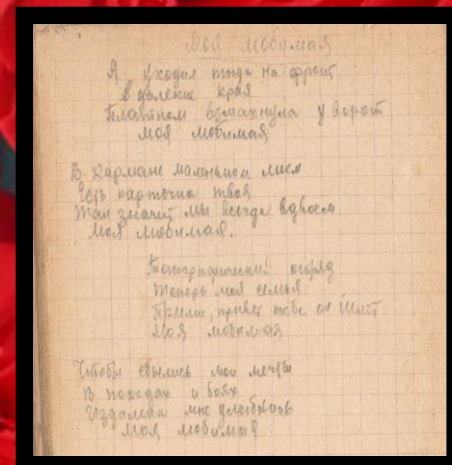 Моя любимая
Я уходил тогда на фронт
в далекие края
Платком взмахнула у ворот
моя любимая
В кармане маленьком моем
Есть карточка твоя
Так значит мы всегда вдвоем
Моя любимая.
Топографический отряд
Теперь моя семья
Прими, привет тебе он шлет
Моя любимая
Чтобы сбылись мои мечты
В походах и боях
Издалека мне улыбнись
Моя любимая.